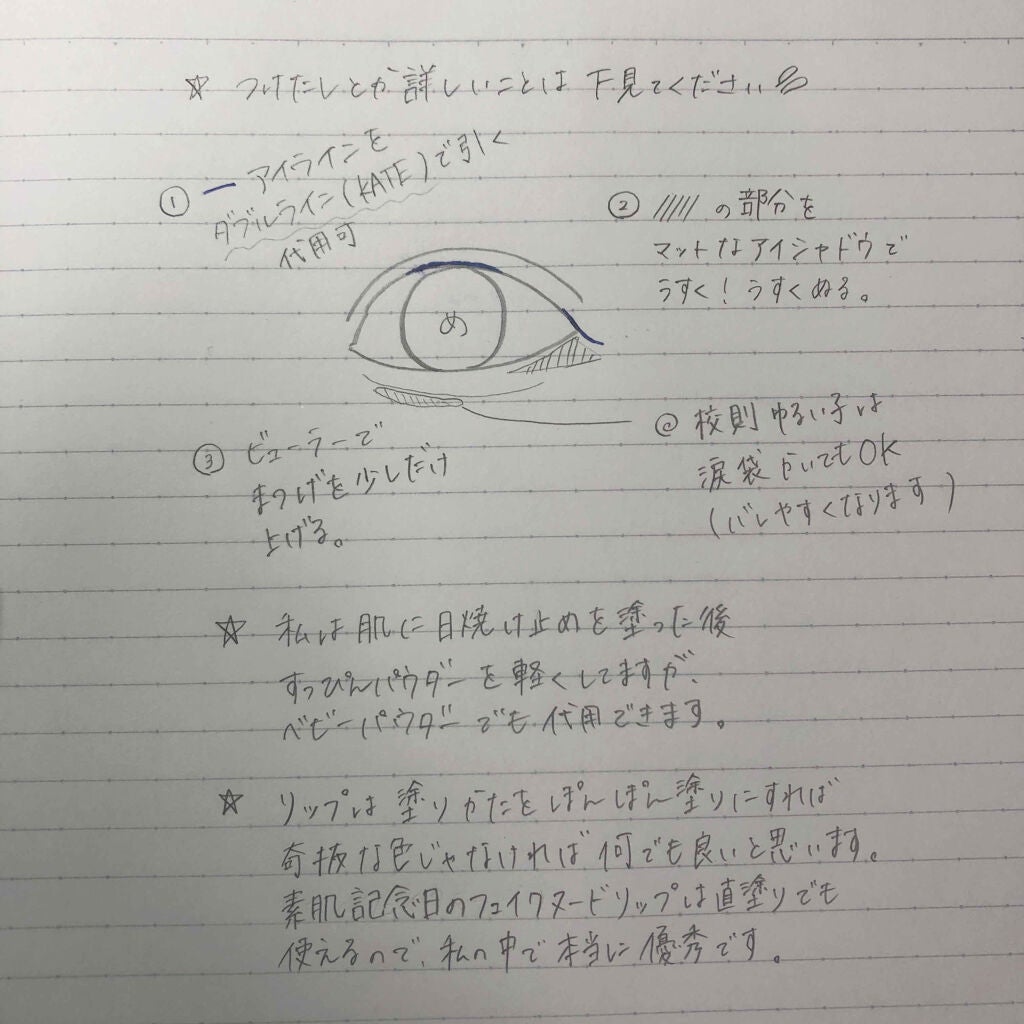 ☆ つけたしとか詳しいことは下見てください
① ー アイラインを
ダブルライン(KATE)で引く
代用可
② ///// の部分を
マットなアイシャドウで
うすく!うすくぬる。
め
③ ビューラーで
まつげを少しだけ
上げる。
@ 校則ゆるい子は
涙袋かいてもOK
(バレやすくなります)
☆ 私は肌に日焼け止めを塗った後
すっぴんパウダーを軽くしてますが、
ベビーパウダーでも代用できます。
☆ リップは塗りかたをぽんぽん塗りにすれば
奇抜な色じゃなければ何でも良いと思います。
素肌記念日のフェイクヌードリップは直塗りでも
使えるので、私の中で本当に優秀です。